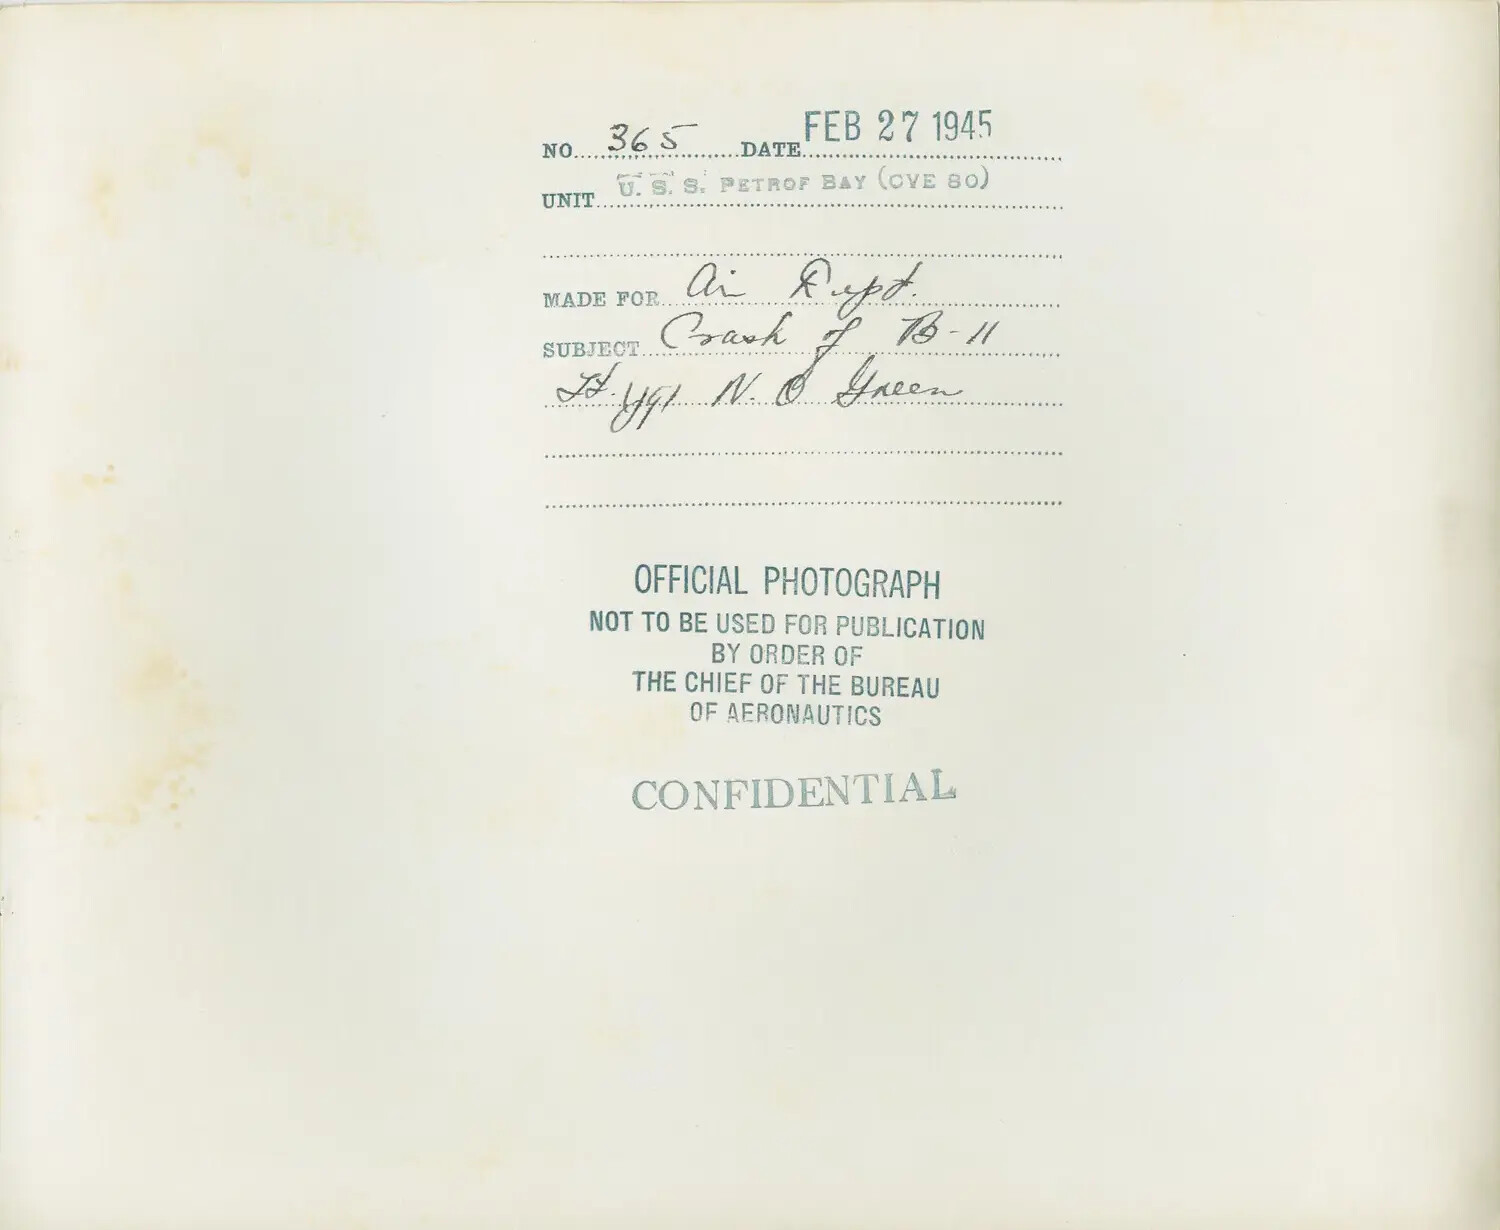 NO. 365 DATE FEB 27 1945
UNIT U. S. S. PETROF BAY (CVE 80)
MADE FOR Air Dept.
SUBJECT Crash of B-11
Lt. N. O Green
OFFICIAL PHOTOGRAPH
NOT TO BE USED FOR PUBLICATION
BY ORDER OF
THE CHIEF OF THE BUREAU
OF AERONAUTICS
CONFIDENTIAL